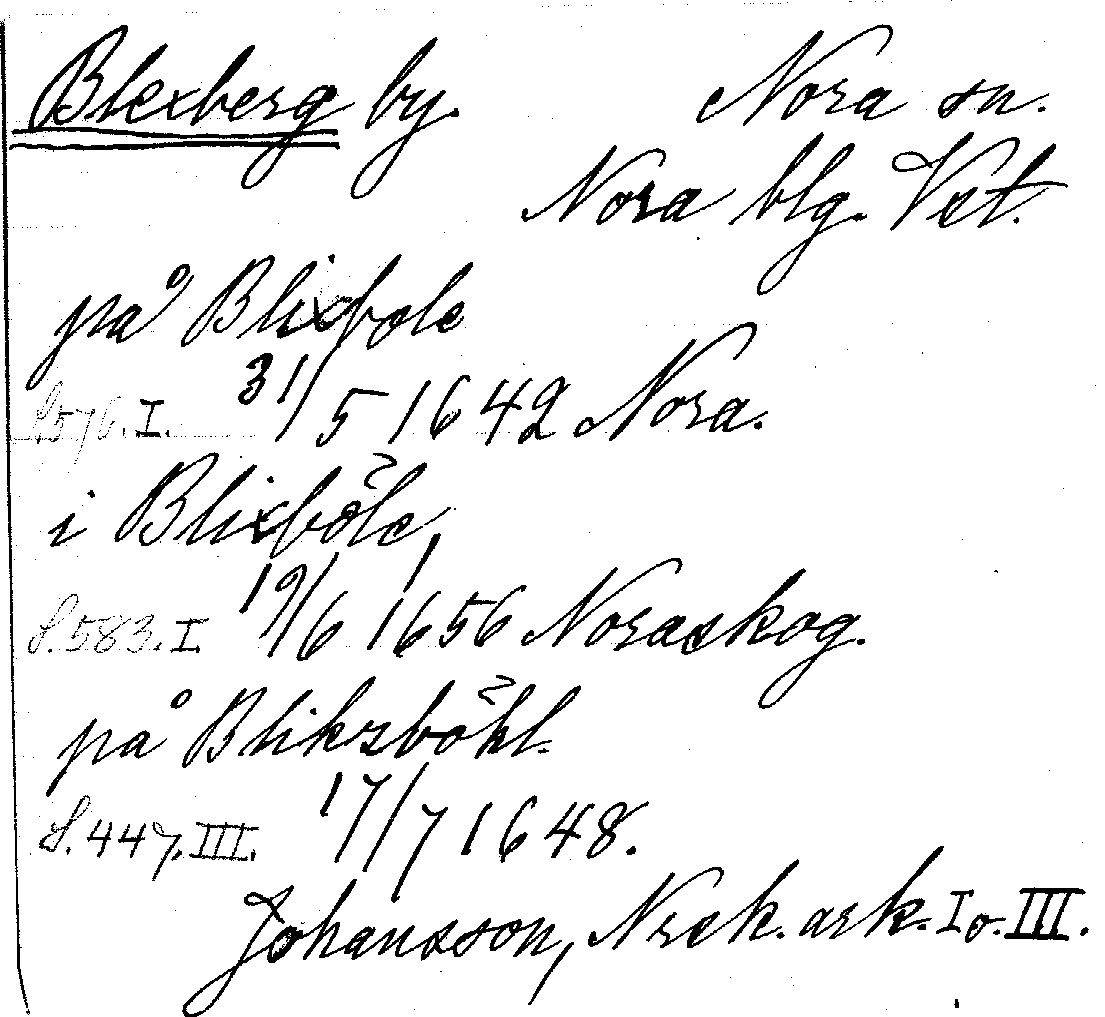 Blexberg by. Nora sn.
Nora blg. Vet.
på Blixbole
S. 576. I. 31/5 1642 Nora.
i Blixböle,
S. 583. I. 19/6 1656 Noraskog.
på Bliksböhl.
S. 447. III. 17/7 1648.
Johansson, Nrsk. ark. I o. III.